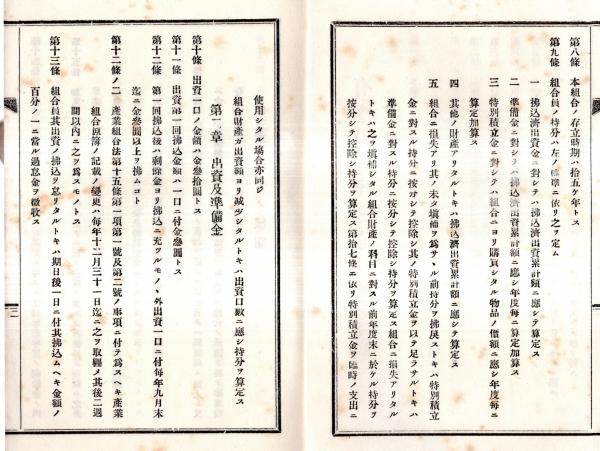 第八條 本組合ノ存立時期ハ拾五ケ年トス
第九條 組合員ノ持分ハ左ノ標準ニ依リ之ヲ定ム
一 拂込濟出資金ニ對シテハ拂込濟出資累計額ニ應シテ算定ス
二 準備金ニ對シテハ拂込濟出資累計額ニ應シ年度每ニ算定加算ス
三 特別積立金ニ對シテハ組合ニヨリ購買シタル物品ノ價額ニ應シ年度每ニ
算定加算ス
四 其他ノ財產アリタルトキハ拂込濟出資累計額ニ應シテ算定ス
五 組合ニ損失アリ其ノ未タ塡補ヲ爲サヽル前持分ヲ拂戾ストキハ特別積立
金ニ對スル持分ニ按分シテ控除シ其ノ特別積立金ヲ以テ足ラサルトキハ
準備金ニ對スル持分ニ按分シテ控除シ持分ヲ算定ス組合ニ損失アリタル
トキハ之ヲ塡補シタル組合財產ノ科目ニ對スル前年度末ニ於ケル持分ヲ
按分シテ控除シ持分ヲ算定ス第拾七條ニ依リ特別積立金ヲ臨時ノ支出ニ
使用シタル場合亦同シ
組合財產ガ出資額ヨリ減ジタルトキハ出資口數ニ應シ持分ヲ算定ス
第二章 出資及準備金
第十條 出資一口ノ金額ハ金參拾圓トス
第十一條 出資第一回拂込金額ハ一口ニ付金參圓トス
第十二條 第一回拂込後ハ剩餘金ヨリ拂込ニ充ツルモノヽ外出資一口ニ付每年九月末
迄ニ金參圓以上ヲ拂ムコト
第十二條ノ二 產業組合法第十五條第一項第一號及第二號ノ事項ニ付テ爲スヘキ產業
組合原簿ノ記載ノ變更ハ每年十二月三十一日迄ニ之ヲ取纒メ其後二週
間以內ニ之ヲ爲スモノトス
第十三條 組合員其出資ノ拂込ヲ怠リタルトキハ期日後一日ニ付其拂込ムヘキ金額ノ
百分ノ一ニ當ル過怠金ヲ徵收ス
三